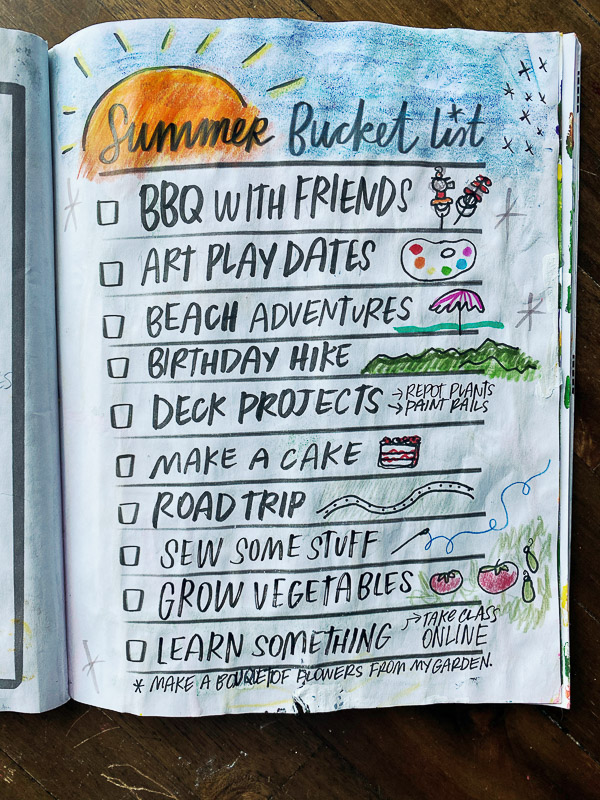 Summer Bucket list
BBQ WITH FRIENDS
ART PLAY DATES
BEACH ADVENTURES
BIRTHDAY HIKE
DECK PROJECTS → REPOT PLANTS
→ PAINT RAILS
MAKE A CAKE
ROAD TRIP
SEW SOME STUFF
GROW VEGETABLES
LEARN SOMETHING → TAKE CLASS
ONLINE
* MAKE A BOUQUET OF FLOWERS FROM MY GARDEN.